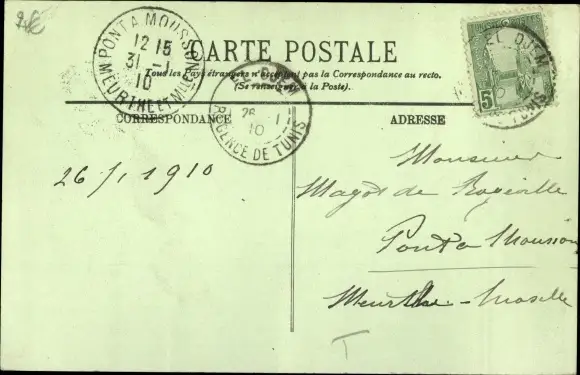 2€
PONT A MOUSSON
12 15
31 -1
10
MEURTHE ET MLLE
CARTE POSTALE
Tous les Pays étrangers n'acceptent pas la Correspondance au recto.
(Se renseigner à la Poste).
EL DJEM
26 -1
10
REGENCE DE TUNIS
EL DJEM
TUNIS
5
CORRESPONDANCE
ADRESSE
26/1 1910
Monsieur
Magot de Rogéville
Pont à Mousson
Meurthe-Moselle
T